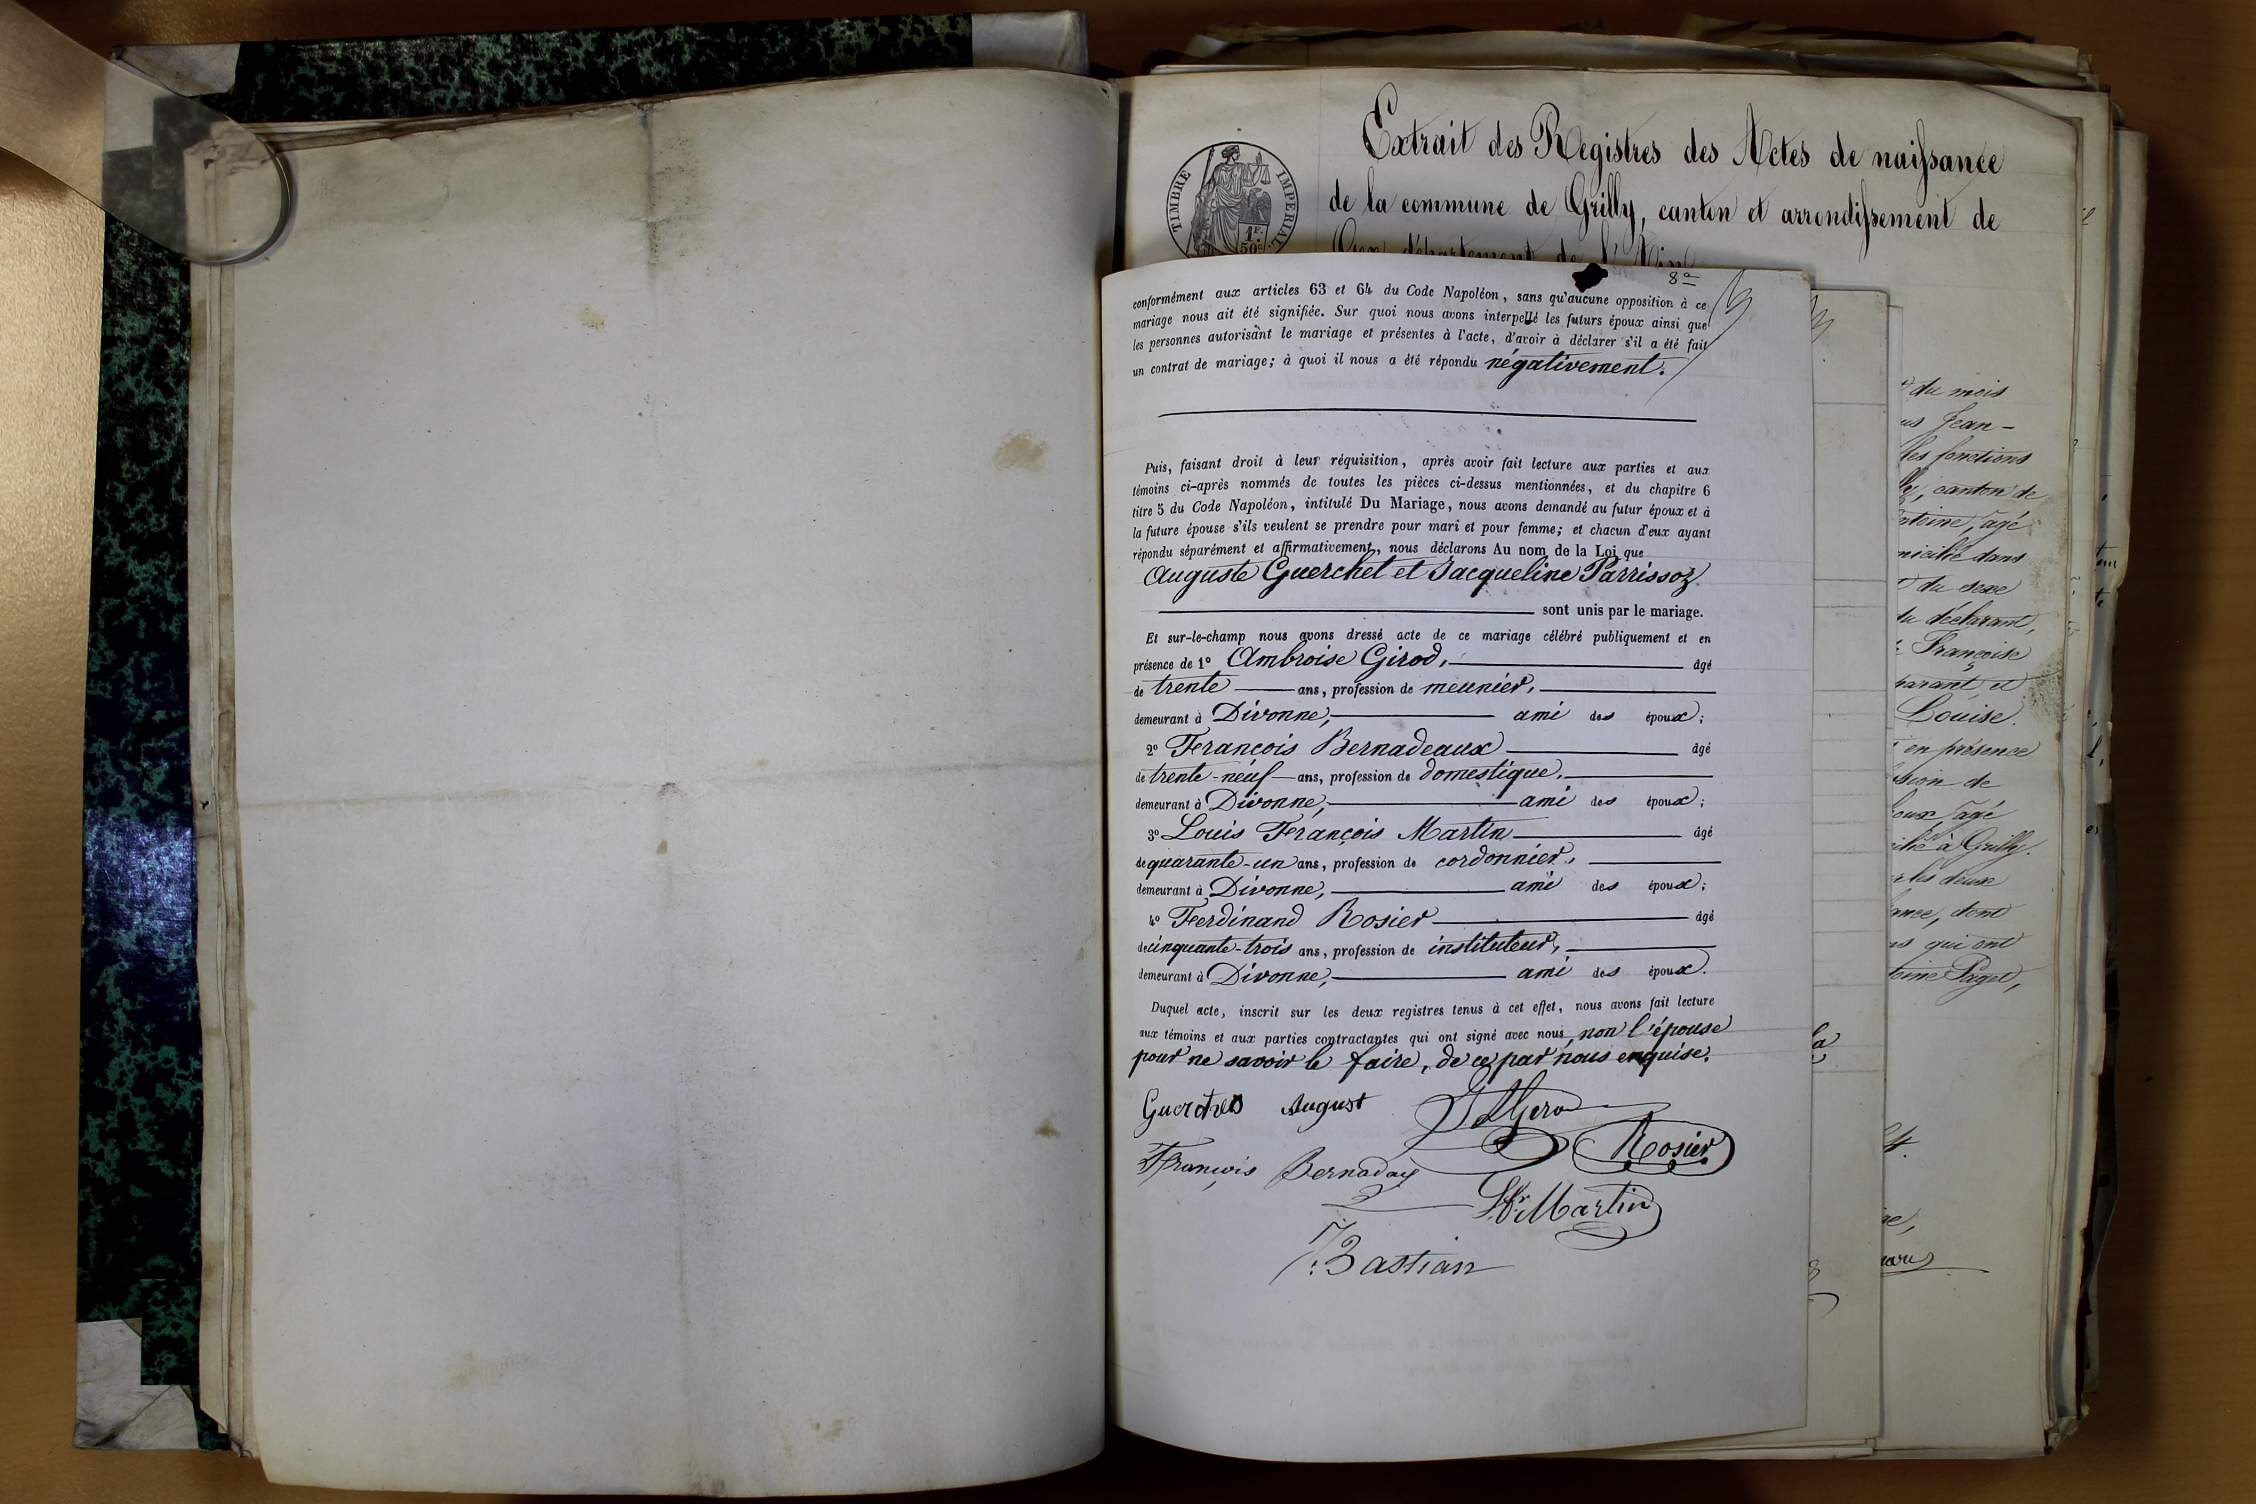 Extrait des Registres des Actes de naissance
de la commune de Grilly, canton et arrondissement de
Gex, département de l'Ain
TIMBRE IMPERIAL
1F.
50c
8a
conformément aux articles 63 et 64 du Code Napoléon, sans qu'aucune opposition à ce
mariage nous ait été signifiée. Sur quoi nous avons interpellé les futurs époux ainsi que
les personnes autorisant le mariage et présentes à l'acte, d'avoir à déclarer s'il a été fait
un contrat de mariage; à quoi il nous a été répondu négativement.
Puis, faisant droit à leur réquisition, après avoir fait lecture aux parties et aux
témoins ci-après nommés de toutes les pièces ci-dessus mentionnées, et du chapitre 6
titre 5 du Code Napoléon, intitulé Du Mariage, nous avons demandé au futur époux et à
la future épouse s'ils veulent se prendre pour mari et pour femme; et chacun d'eux ayant
répondu séparément et affirmativement, nous déclarons Au nom de la Loi que
Auguste Guerchet et Jacqueline Parrissoz
sont unis par le mariage.
Et sur-le-champ nous avons dressé acte de ce mariage célébré publiquement et en
présence de 1° Ambroise Girod, âgé
de trente ans, profession de meunier,
demeurant à Divonne, ami des époux;
2° François Bernadeaux âgé
de trente-neuf ans, profession de domestique,
demeurant à Divonne, ami des époux;
3° Louis François Martin âgé
de quarante-un ans, profession de cordonnier,
demeurant à Divonne, ami des époux;
4° Ferdinand Rosier âgé
de cinquante-trois ans, profession de instituteur,
demeurant à Divonne, ami des époux.
Duquel acte, inscrit sur les deux registres tenus à cet effet, nous avons fait lecture
aux témoins et aux parties contractantes qui ont signé avec nous, non l'épouse
pour ne savoir le faire, de ce par nous enquise.
August
Rosier
François Bernadax
Martin
Bastian
du mois
Jean-
les fonctions
canton de
agé
dans
du sexe
du déclarant,
Françoise
et
Louise.
en présence
de
agé
à Grilly.
les deux
dont
qui ont
Paget,